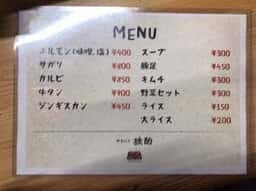 MENU
ホルモン(味噌,塩) ¥400
サガリ ¥800
カルビ ¥850
牛タン ¥900
ジンギスカン ¥450
スープ ¥300
豚足 ¥450
キムチ ¥300
野菜セット ¥300
ライス ¥150
大ライス ¥200
独酌